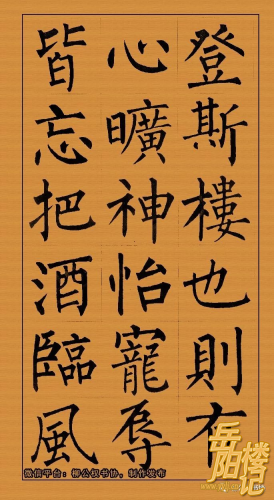 登斯樓也則有
心曠神怡寵辱
皆忘把酒臨風
微信平台：柳公权书协，制作发布
岳阳楼记